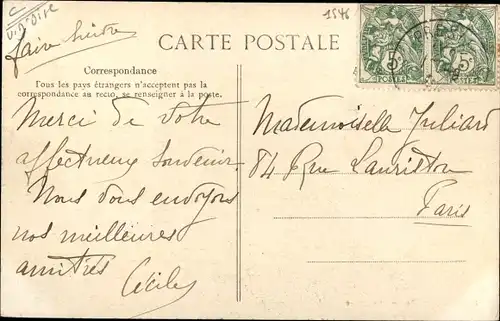 V. d'Oise
faire suivre
1546
CARTE POSTALE
Correspondance
Tous les pays étrangers n'acceptent pas la
correspondance au recto, se renseigner à la poste.
5c 5c
POSTES
Merci de votre
affectueux souvenir.
Nous vous envoyons
nos meilleures
amitiés
Cécile
Mademoiselle Juliard
84 Rue Lauriston
Paris